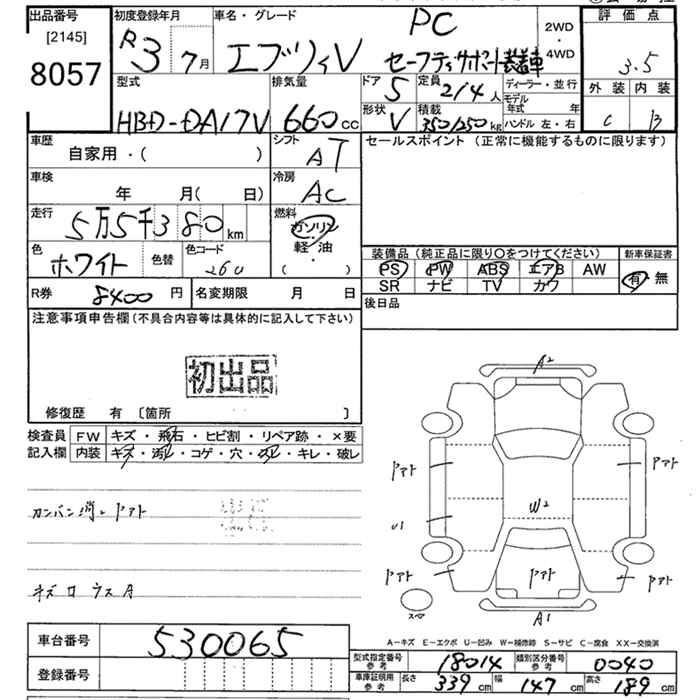 出品番号
[2145]
8057
初度登録年月
R3 7月
車名・グレード
エブリィV
PC
セーフティサポート装着車
2WD
・
4WD
評価点
3.5
外装 内装
C B
型式
HBD-DA17V
排気量
660cc
ドア 5
形状 V
定員 2/4人
積載 350/250kg
ディーラー・並行
モデル年式 年
ハンドル 左・右
車歴
自家用・( )
シフト AT
車検
年 月(日)
冷房 AC
走行
5万5千380km
燃料
ガソリン
軽・油
( )
色
ホワイト
色替
色コード
26U
R券 8400円
名変期限 月 日
セールスポイント(正常に機能するものに限ります)
装備品(純正品に限り○をつけてください)
PS PW ABS エアB AW
SR ナビ TV カワ
新車保証書
有 無
後日品
注意事項申告欄(不具合内容等は具体的に記入して下さい)
初出品
修復歴 有〔箇所 〕
検査員
記入欄
FW キズ・飛石・ヒビ割・リペア跡・×要
内装 キズ・汚レ・コゲ・穴・スレ・キレ・破レ
カンバン消し アト
キズ ウス A
A2
アト
アト
U1
W2
アト
アト
アト
スペア
A1
A-キズ E-エクボ U-凹み W-補修跡 S-サビ C-腐食 XX-交換済
車台番号 530065
登録番号
型式指定番号 参考 18014
類別区分番号 参考 0040
車庫証明用 参考 長さ 339cm 幅 147cm 高さ 189cm